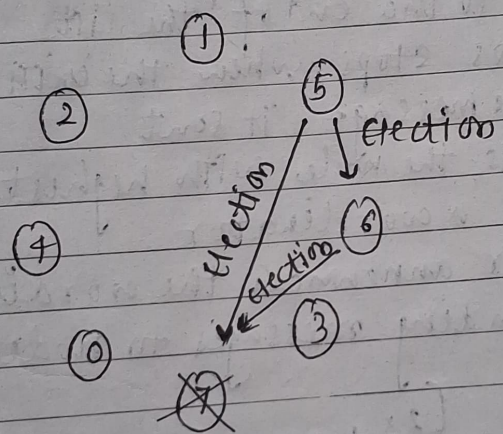 1
5
2
election
election
6
4
election
3
0
7